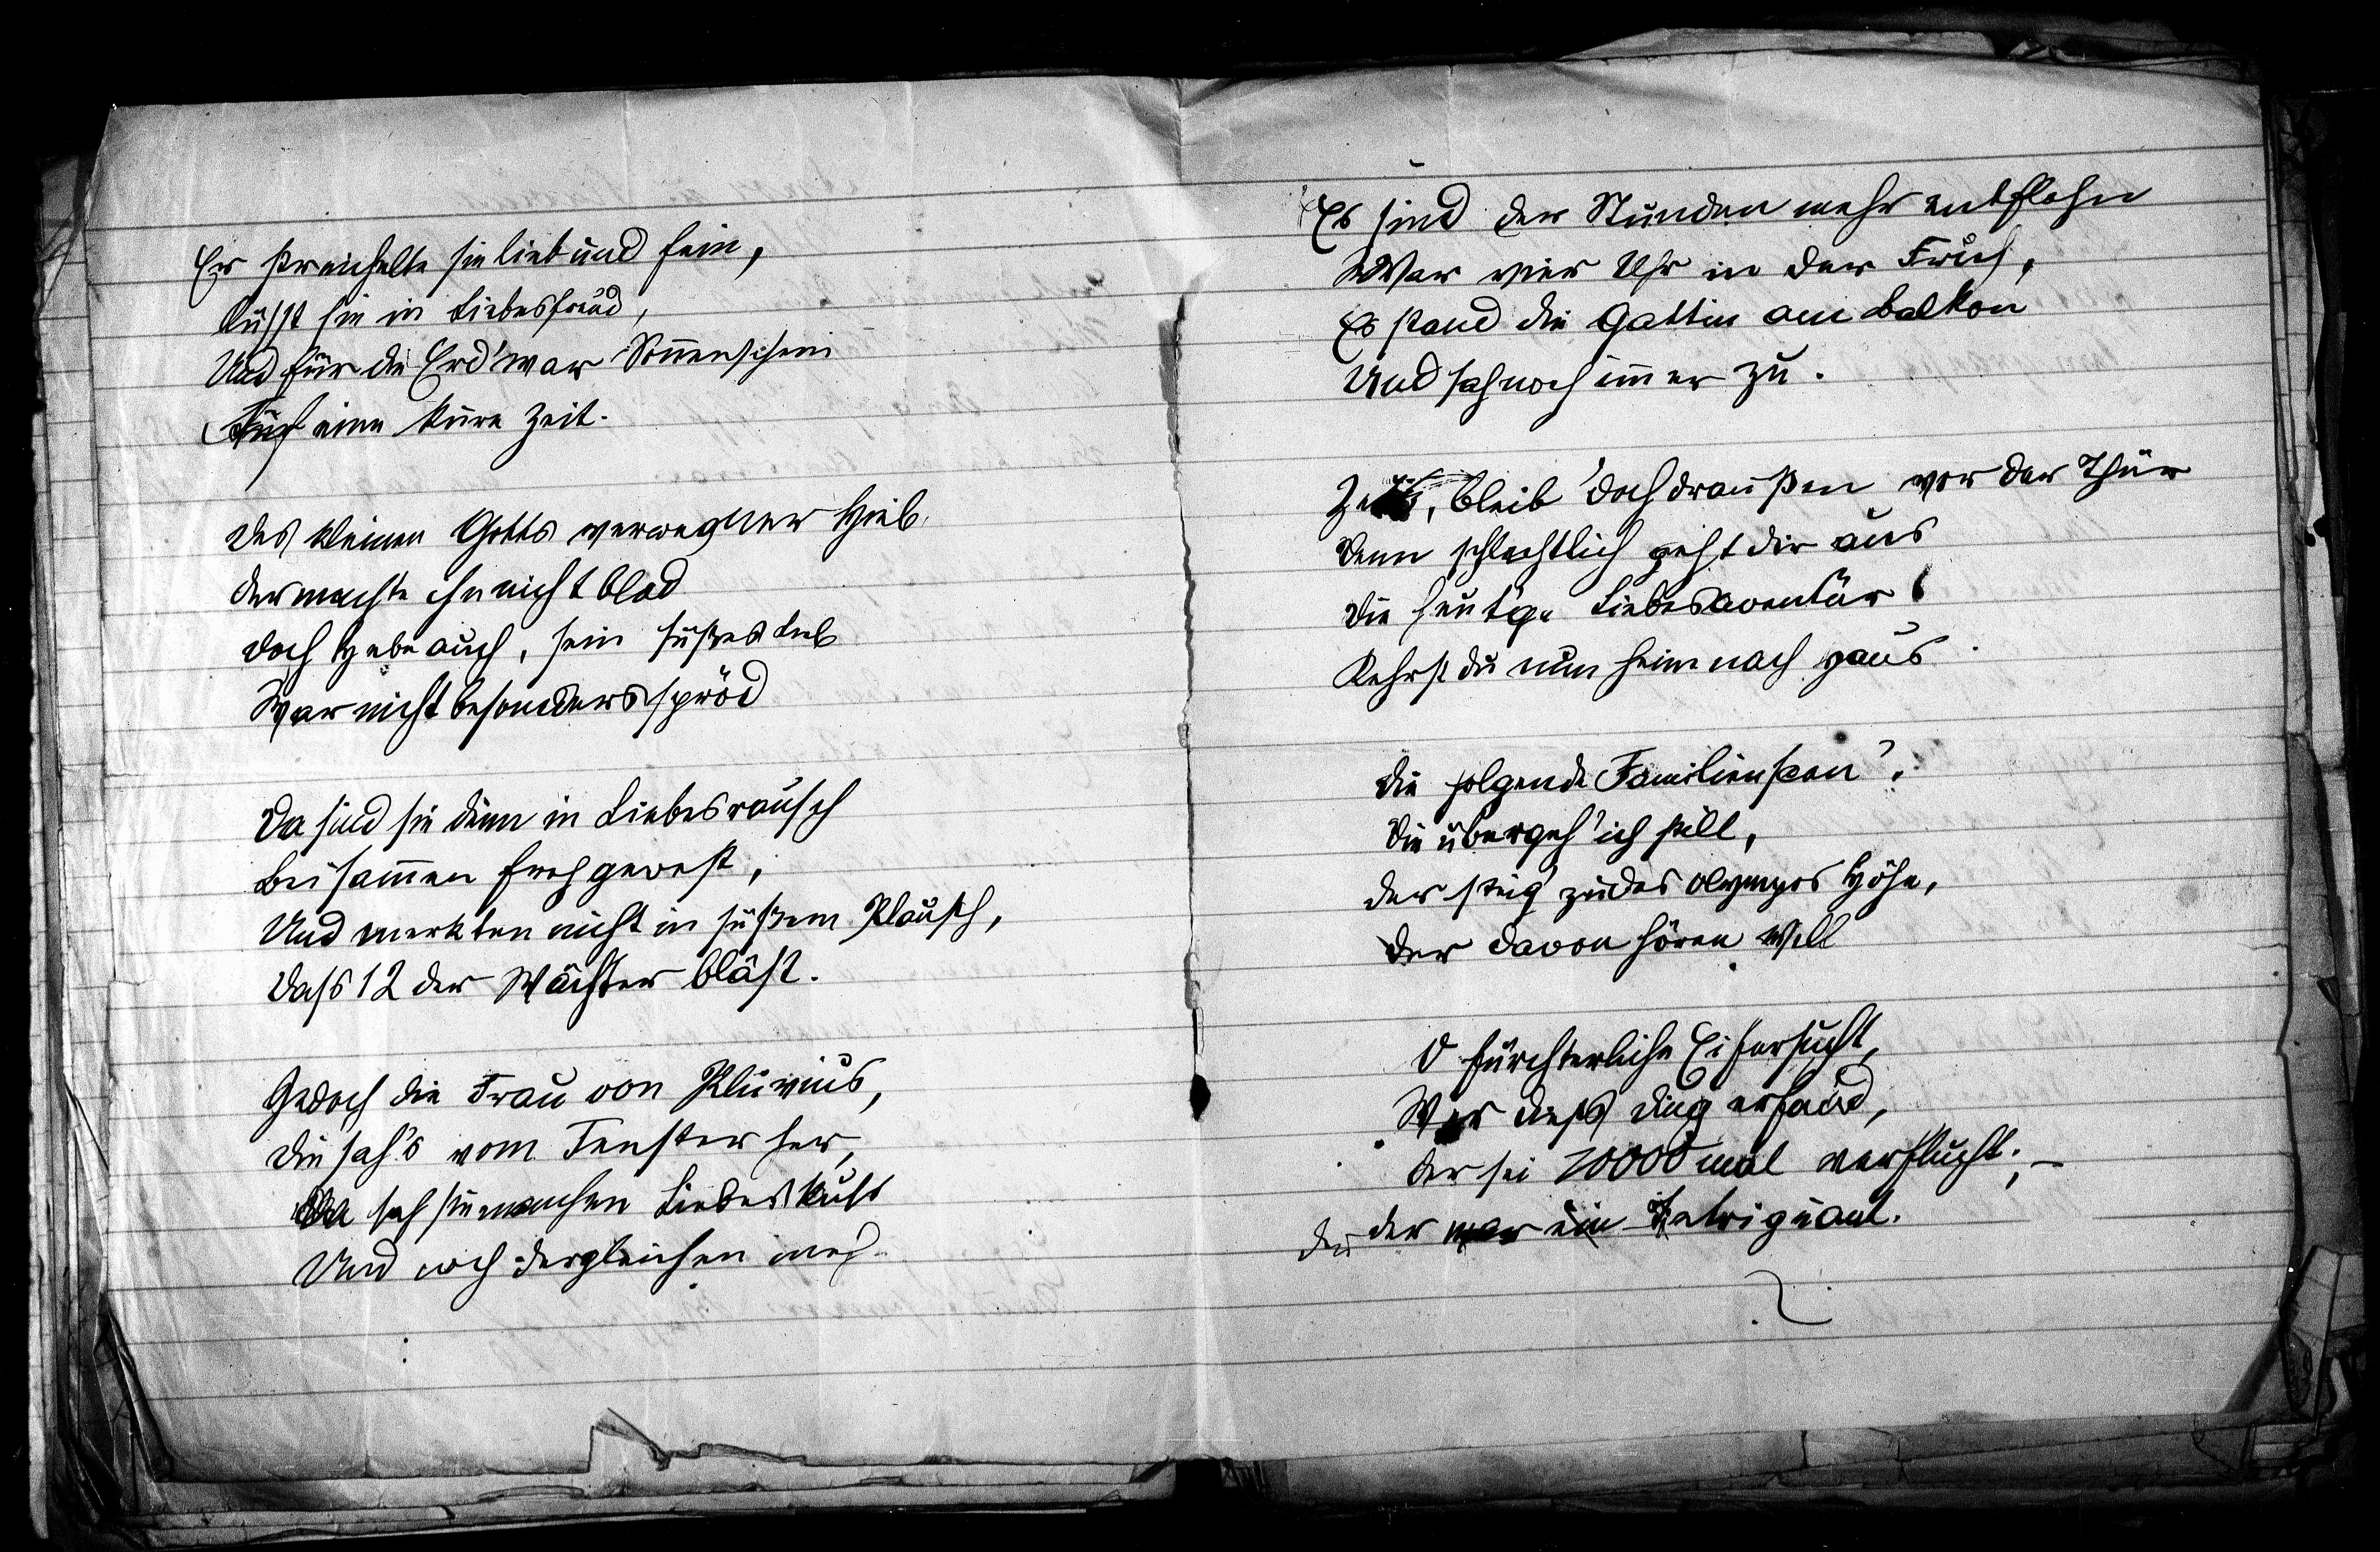 Er streichelte sie lieb und fein,
Küsst sie in Liebesfreud,
Und für die Erd' war Sonnenschein
Auf eine kurze Zeit.
Des kleinen Gotts verwegner Hieb
der machte ihn nicht blöd
Doch Hebe auch, sein süßes Lieb
War nicht besonders spröd
Da sind sie denn in Liebesrausch
Beisammen froh gewest,
Und merkten nicht in süßem Plausch,
Dass 12 der Wächter bläst.
Jedoch die Frau von Pluvius,
Die sah's vom Fenster her,
Da sah sie manchen Liebeskuss
Und noch dergleichen mehr
Es sind der Stunden mehr entflohn
War vier Uhr in der Früh,
Es stand die Gattin am Balkon
Und sah noch immer zu.
Zeus, bleib' doch draußen vor der Thür
Denn schlechtlich geht dir aus
Die heut'ge Liebesaventür
Kehrst du nun heim nach Haus
Die folgende Familienscen'.
Die übergeh' ich still,
Der steig' zu des Olympos Höhe,
Der davon hören will
O fürchterliche Eifersucht,
Wer dieß Ding erfand,
Der sei 10000 mal verflucht; –
der war ein Intriguant.